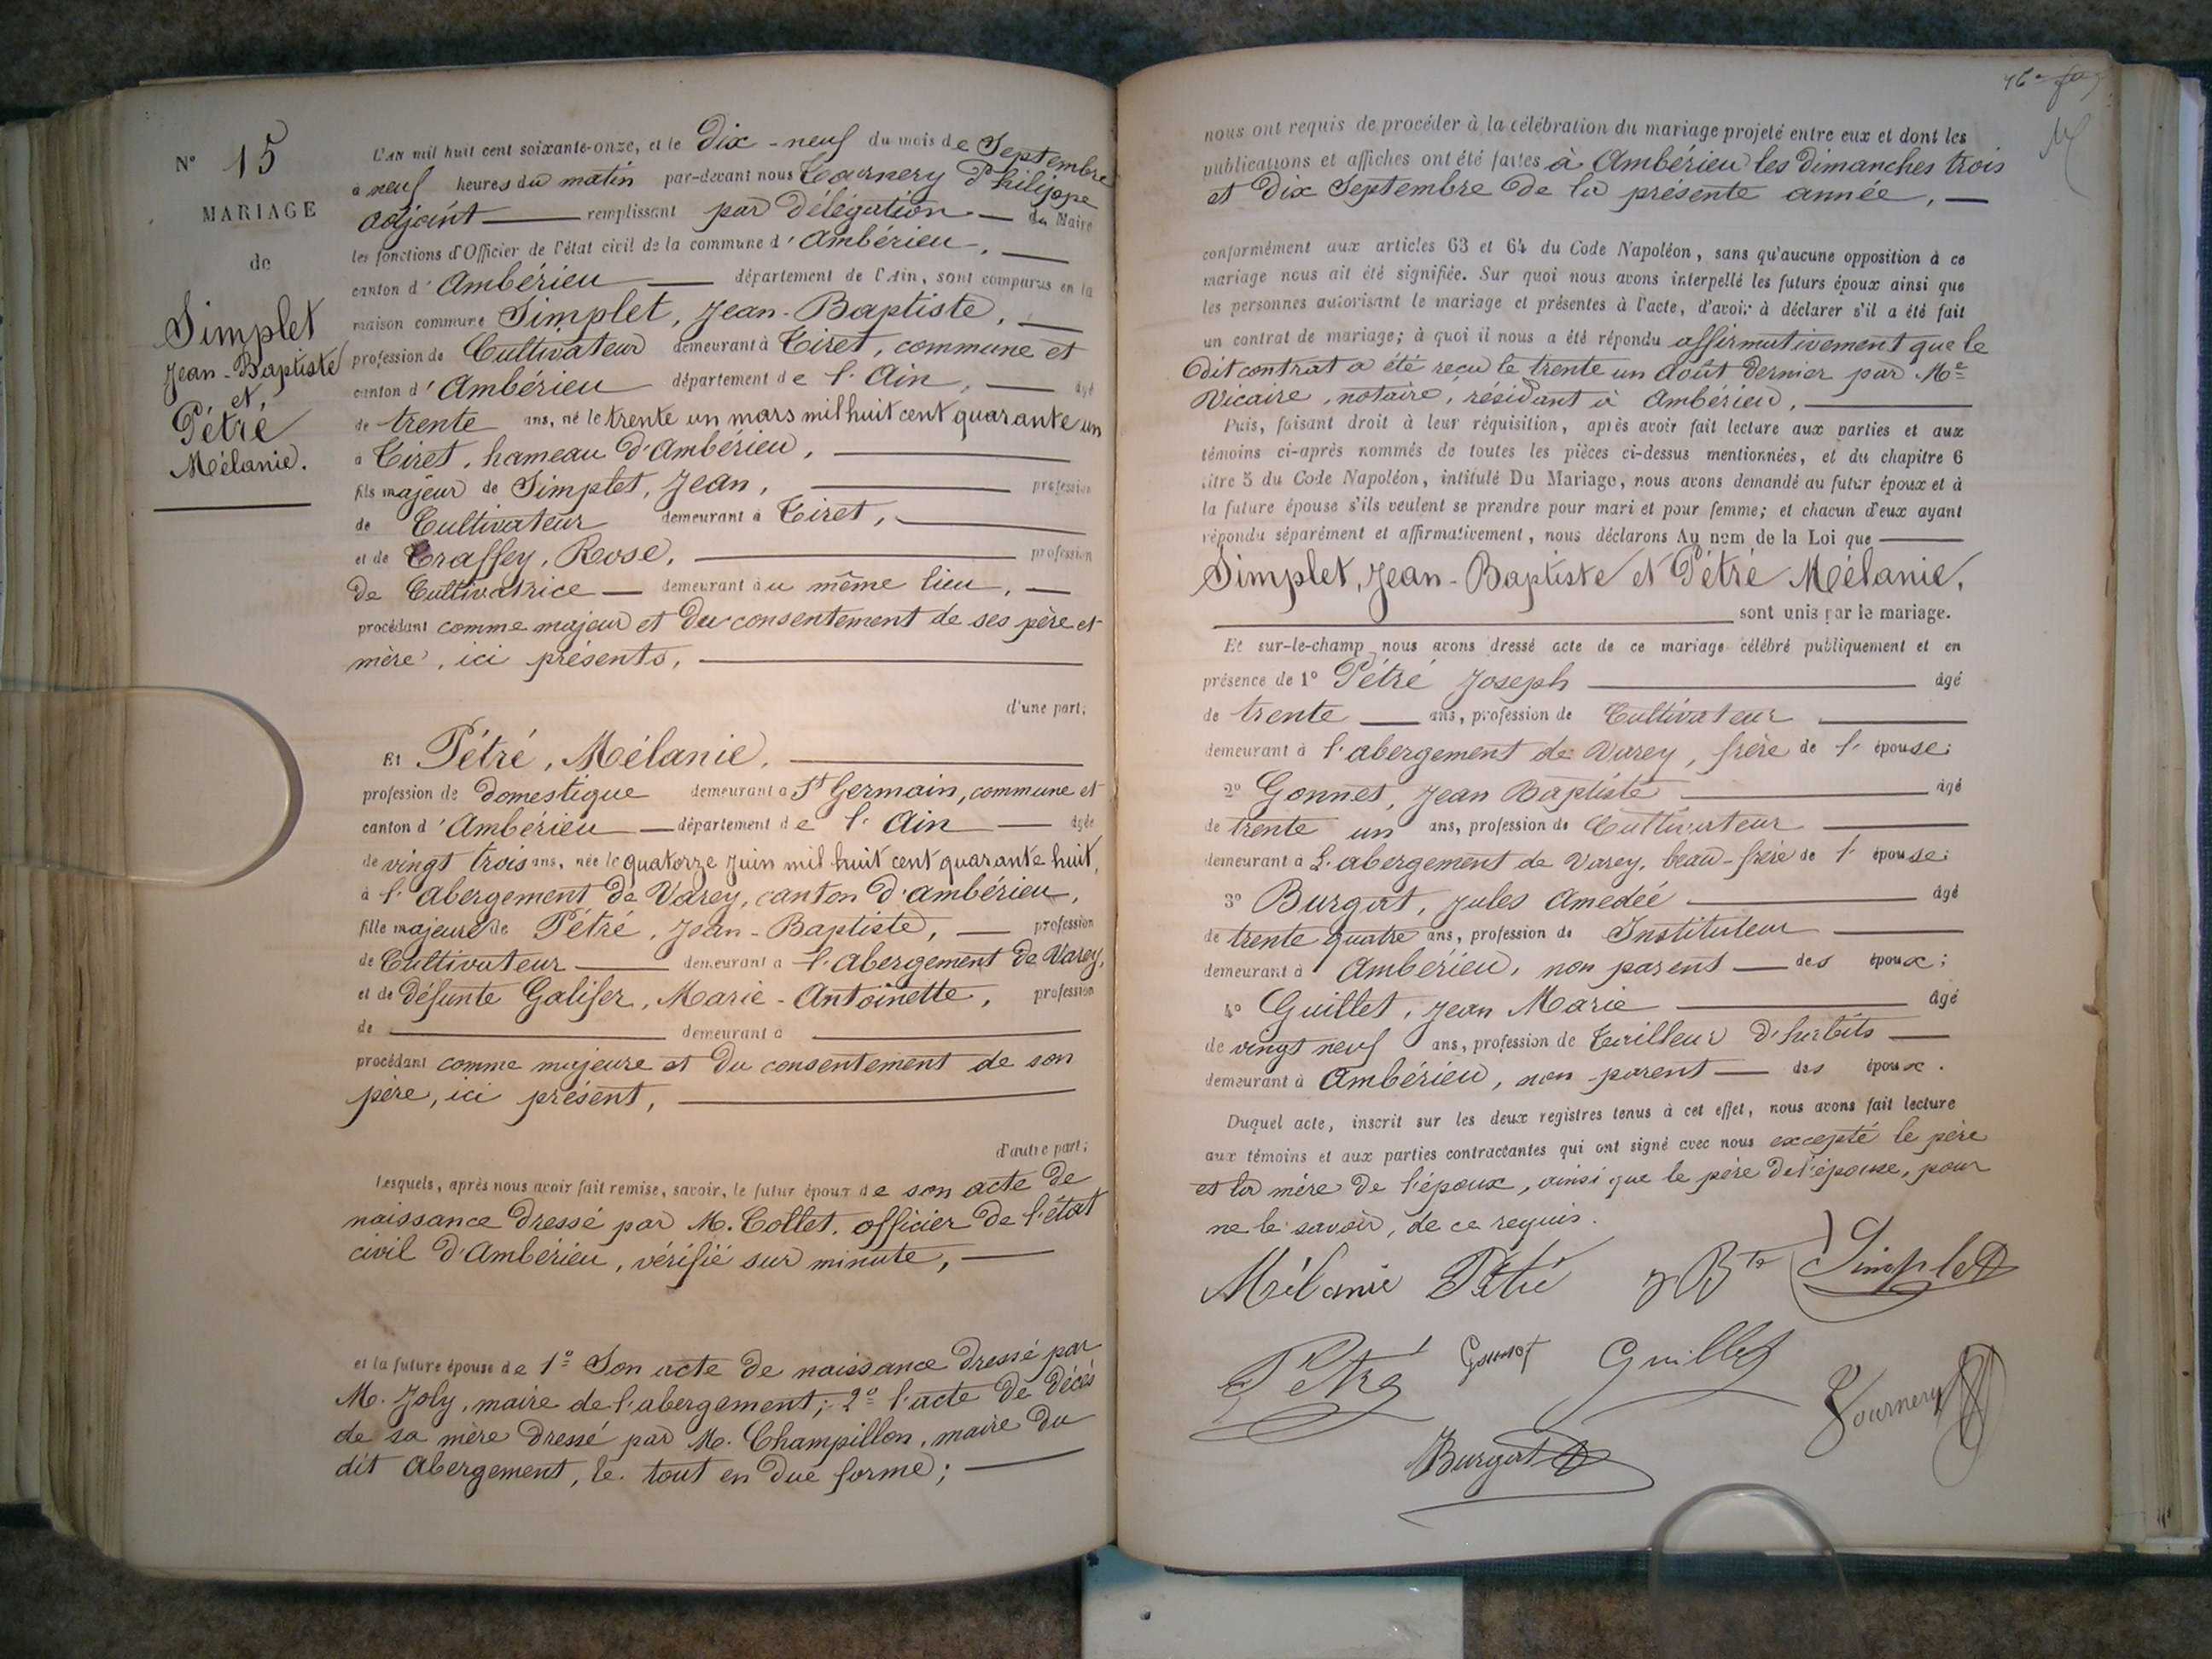 N° 15
MARIAGE
de
Simplet
Jean-Baptiste
et
Pétré
Mélanie.
L'AN mil huit cent soixante-onze, et le Dix-neuf du mois de Septembre
à neuf heures du matin par-devant nous Tournery Philippe
adjoint remplissant par délégation du Maire
les fonctions d'Officier de l'état civil de la commune d'Ambérieu,
canton d'Ambérieu département de l'Ain, sont comparus en la
maison commune Simplet, Jean-Baptiste,
profession de Cultivateur demeurant à Tiret, commune et
canton d'Ambérieu département de l'Ain, âgé
de trente ans, né le trente un mars mil huit cent quarante un
à Tiret, hameau d'Ambérieu,
fils majeur de Simplet, Jean, profession
de Cultivateur demeurant à Tiret,
et de Traffey, Rose, profession
De Cultivatrice demeurant au même lieu,
procédant comme majeur et du consentement de ses père et
mère, ici présents,
d'une part;
Et Pétré, Mélanie,
profession de domestique demeurant à St Germain, commune et
canton d'Ambérieu département de l'Ain âgée
de vingt trois ans, née le quatorze juin mil huit cent quarante huit,
à l'abergement de Varey, canton d'ambérieu,
fille majeure de Pétré, Jean-Baptiste, profession
de Cultivateur demeurant à l'abergement de Varey,
et de défunte Galifer, Marie-Antoinette, profession
de demeurant à
procédant comme majeure et du consentement de son
père, ici présent,
d'autre part;
Lesquels, après nous avoir fait remise, savoir, le futur époux de son acte de
naissance dressé par M. Collet, officier de l'état
civil d'Ambérieu, vérifié sur minute,
et la future épouse de 1° Son acte de naissance dressé par
M. Joly, maire de l'abergement; 2° l'acte de décès
de sa mère dressé par M. Champillon, maire du
dit abergement, le tout en due forme;
nous ont requis de procéder à la célébration du mariage projeté entre eux et dont les
publications et affiches ont été faites à Ambérieu les dimanches trois
et dix Septembre de la présente année,
conformément aux articles 63 et 64 du Code Napoléon, sans qu'aucune opposition à ce
mariage nous ait été signifiée. Sur quoi nous avons interpellé les futurs époux ainsi que
les personnes autorisant le mariage et présentes à l'acte, d'avoir à déclarer s'il a été fait
un contrat de mariage; à quoi il nous a été répondu affirmativement que le
dit contrat a été reçu le trente un août dernier par Me
Vicaire, notaire, résidant à Ambérieu,
Puis, faisant droit à leur réquisition, après avoir fait lecture aux parties et aux
témoins ci-après nommés de toutes les pièces ci-dessus mentionnées, et du chapitre 6
titre 5 du Code Napoléon, intitulé Du Mariage, nous avons demandé au futur époux et à
la future épouse s'ils veulent se prendre pour mari et pour femme; et chacun d'eux ayant
répondu séparément et affirmativement, nous déclarons Au nom de la Loi que
Simplet, Jean-Baptiste et Pétré Mélanie,
sont unis par le mariage.
Et sur-le-champ nous avons dressé acte de ce mariage célébré publiquement et en
présence de 1° Pétré Joseph âgé
de trente ans, profession de Cultivateur
demeurant à l'abergement de Varey, frère de l'épouse;
2° Gonnet, Jean Baptiste âgé
de trente un ans, profession de Cultivateur
demeurant à L'abergement de Varey, beau-frère de l'épouse;
3° Burgat, Jules Amedéé âgé
de trente quatre ans, profession de Instituteur
demeurant à Ambérieu, non parent des époux;
4° Guillet, Jean Marie âgé
de vingt neuf ans, profession de Tailleur d'habits
demeurant à Ambérieu, non parent des époux.
Duquel acte, inscrit sur les deux registres tenus à cet effet, nous avons fait lecture
aux témoins et aux parties contractantes qui ont signé avec nous excepté le père
et la mère de l'époux, ainsi que le père de l'épouse, pour
ne le savoir, de ce requis.
Mélanie Pétré J Bte Simplet
Pétré Gonnet Guillet
Tournery
Burgat